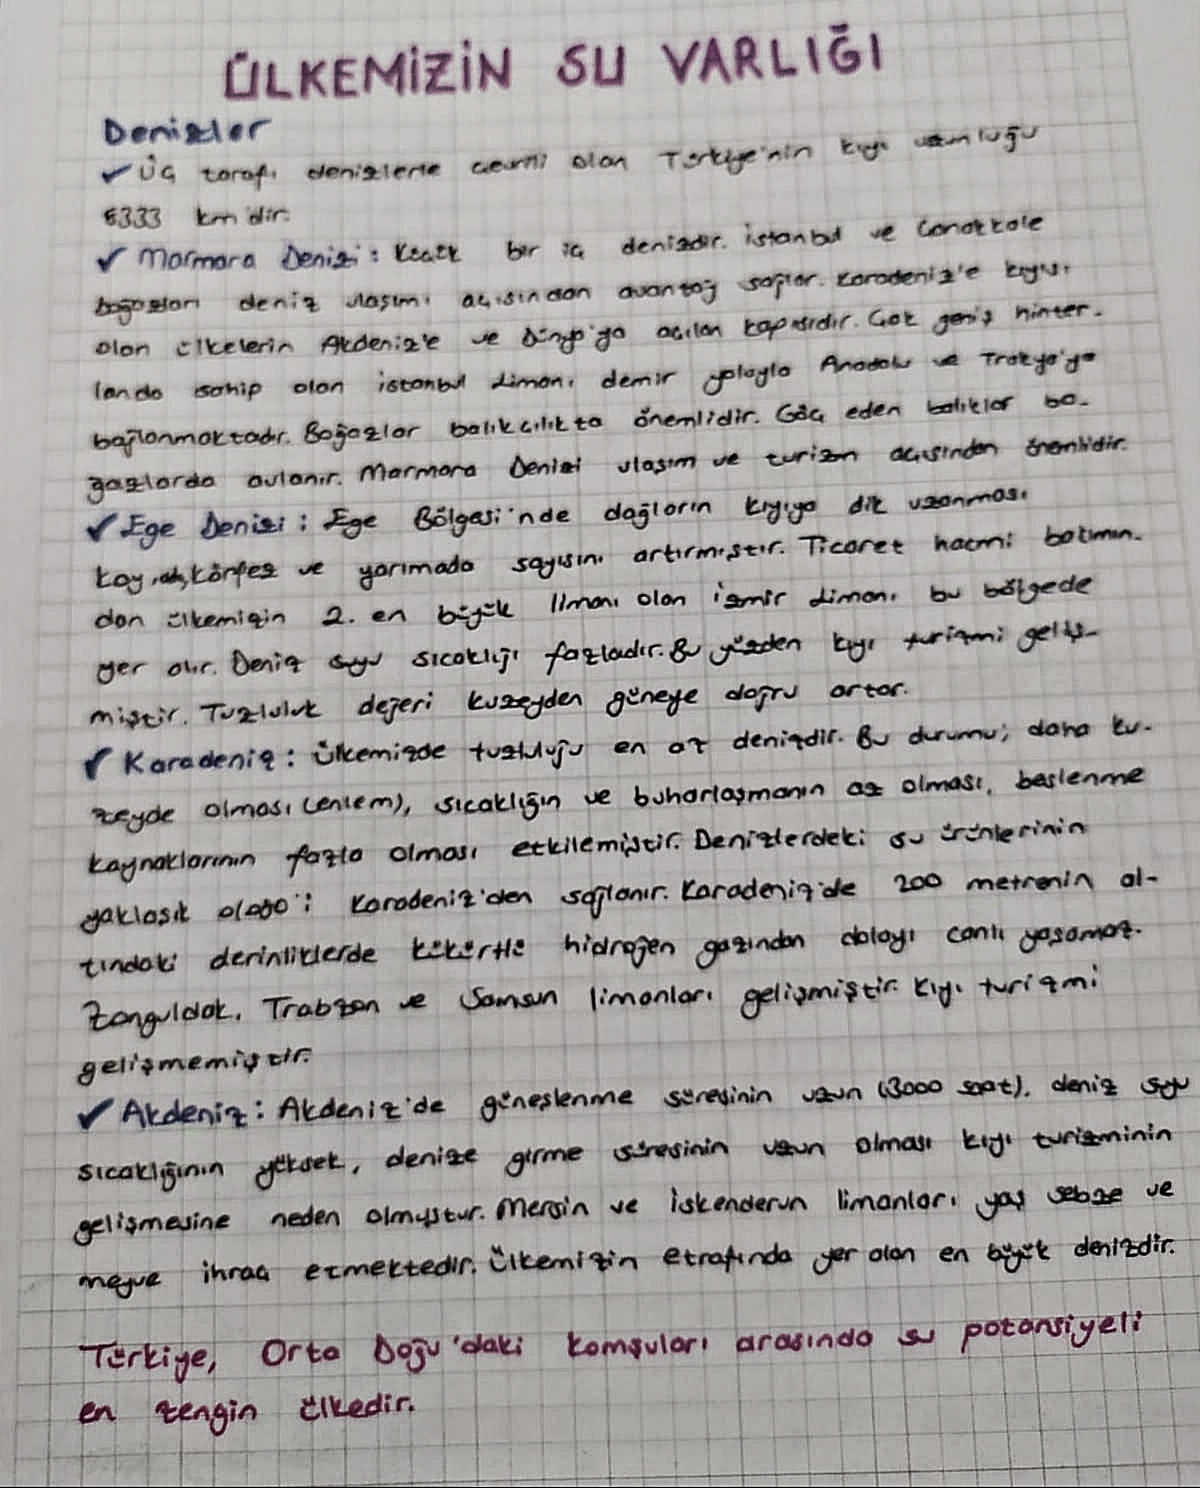 ÜLKEMİZİN SU VARLIĞI
Denizler
✓ Üç tarafı denizlerle çevrili olan Türkiye'nin kıyı uzunluğu
8333 km'dir.
✓ Marmara Denizi: Küçük bir iç denizdir. İstanbul ve Çanakkale
boğazları deniz ulaşımı açısından avantaj sağlar. Karadeniz'e kıyısı
olan ülkelerin Akdeniz'e ve Dünya'ya açılan kapısıdır. Çok geniş hinter-
landa sahip olan İstanbul Limanı demir yoluyla Anadolu ve Trakya'ya
bağlanmaktadır. Boğazlar balıkçılıkta önemlidir. Göç eden balıklar bo-
ğazlarda avlanır. Marmara Denizi ulaşım ve turizm açısından önemlidir.
✓ Ege Denizi: Ege Bölgesi'nde dağların kıyıya dik uzanması
koy, körfez ve yarımada sayısını artırmıştır. Ticaret hacmi bakımın-
dan ülkemizin 2. en büyük limanı olan İzmir Limanı bu bölgede
yer alır. Deniz suyu sıcaklığı fazladır. Bu yüzden kıyı turizmi geliş-
miştir. Tuzluluk değeri kuzeyden güneye doğru artar.
✓ Karadeniz: Ülkemizde tuzluluğu en az denizdir. Bu durumu; daha ku-
zeyde olması (enlem), sıcaklığın ve buharlaşmanın az olması, beslenme
kaynaklarının fazla olması etkilemiştir. Denizlerdeki su ürünlerinin
yaklaşık Karadeniz'den sağlanır. Karadeniz'de 200 metrenin al-
tındaki derinliklerde kükürtlü hidrojen gazından dolayı canlı yaşamaz.
Zonguldak, Trabzon ve Samsun limanları gelişmiştir. Kıyı turizmi
gelişmemiştir.
✓ Akdeniz: Akdeniz'de güneşlenme süresinin uzun (3000 saat), deniz suyu
sıcaklığının yüksek, denize girme süresinin uzun olması kıyı turizminin
gelişmesine neden olmuştur. Mersin ve İskenderun limanları yaş sebze ve
meyve ihraç etmektedir. Ülkemizin etrafında yer alan en büyük denizdir.
Türkiye, Orta Doğu'daki komşuları arasında su potansiyeli
en zengin ülkedir.